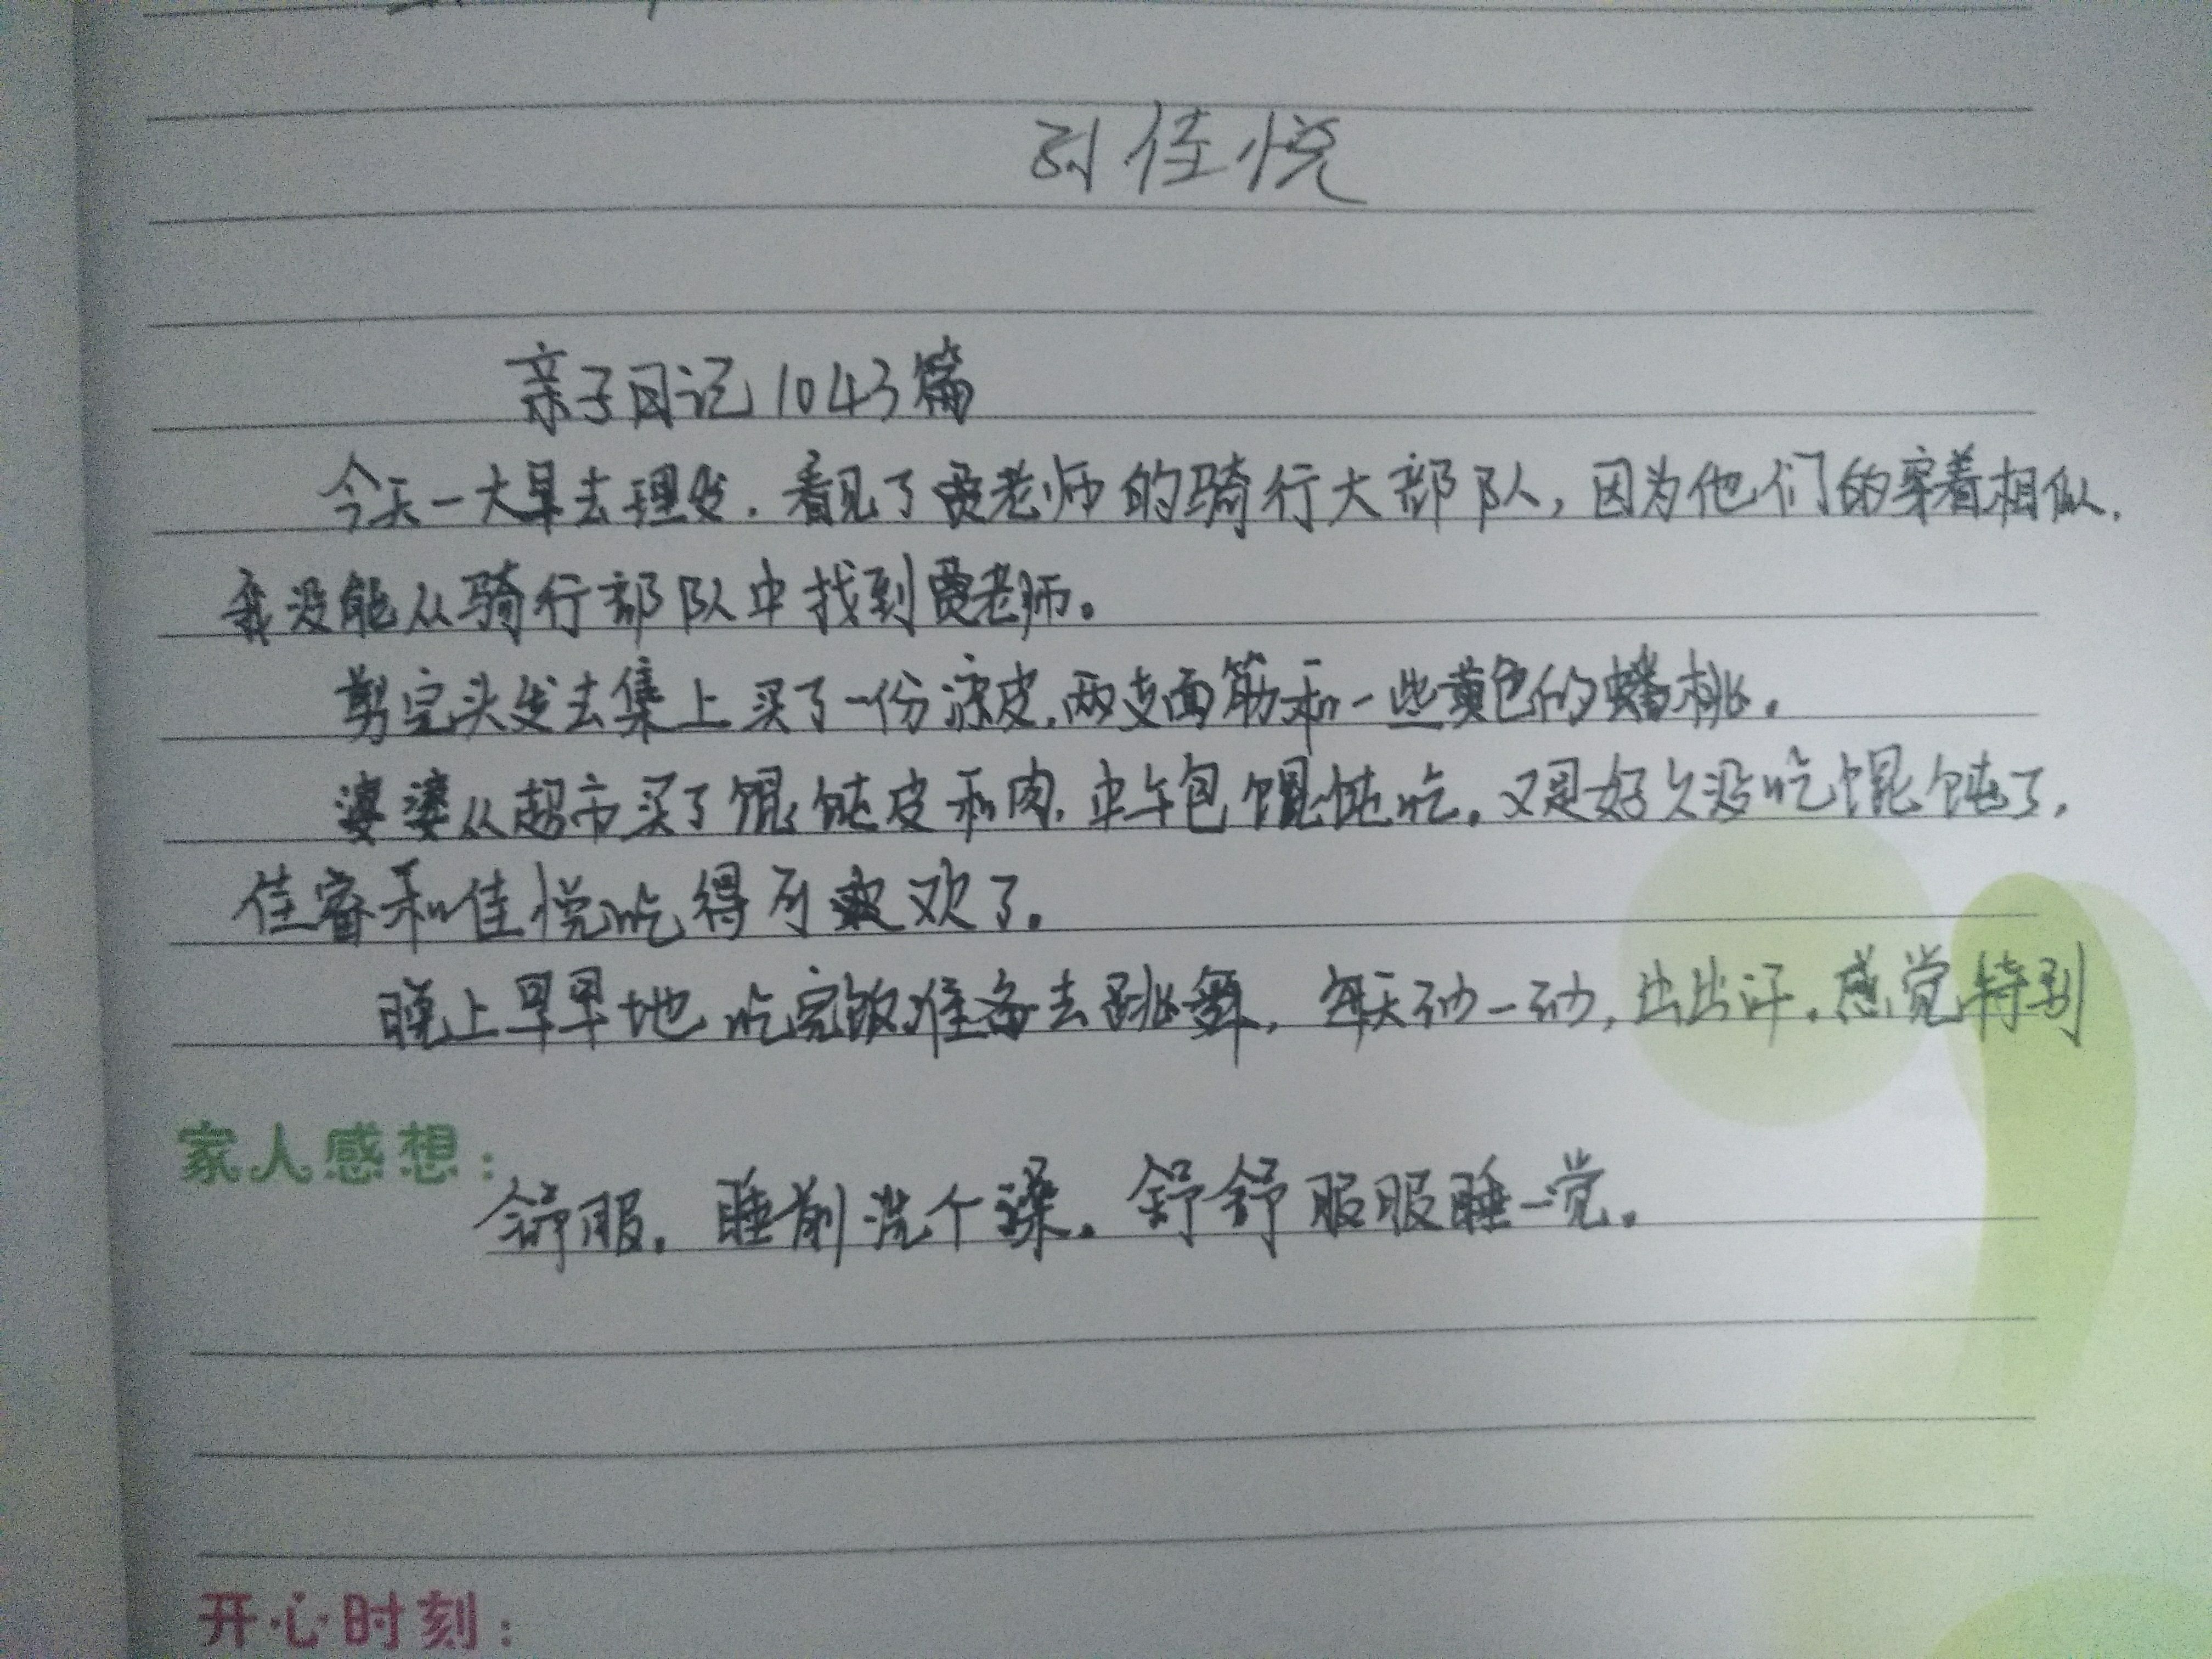 佳悦
亲子日记1043篇
今天一大早去理发，看见了贾老师的骑行大部队，因为他们的穿着相似，
我没能从骑行部队中找到贾老师。
剪完头发去集上买了一份凉皮，两支面筋和一些黄色的蟠桃。
婆婆从超市买了馄饨皮和肉，中午包馄饨吃。又是好久没吃馄饨了，
佳睿和佳悦吃得可欢了。
晚上早早地吃完饭准备去跳舞，每天动一动，出出汗，感觉特别
家人感想：
舒服。睡前洗个澡。舒舒服服睡一觉。
开心时刻：